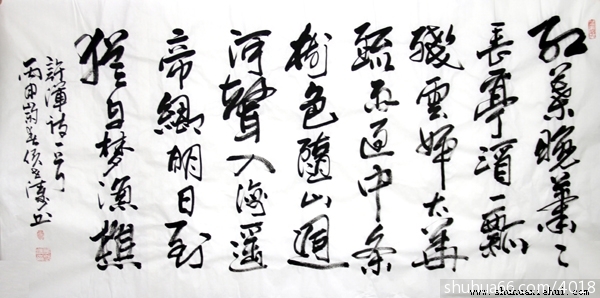 红葉晚蕭〻
長亭酒一瓢
殘雲歸太華
疏雨過中条
樹色隨山迥
河聲入海遥
帝鄉明日到
猶自夢漁樵
許渾詩一首
書
shuhua66.com/4018